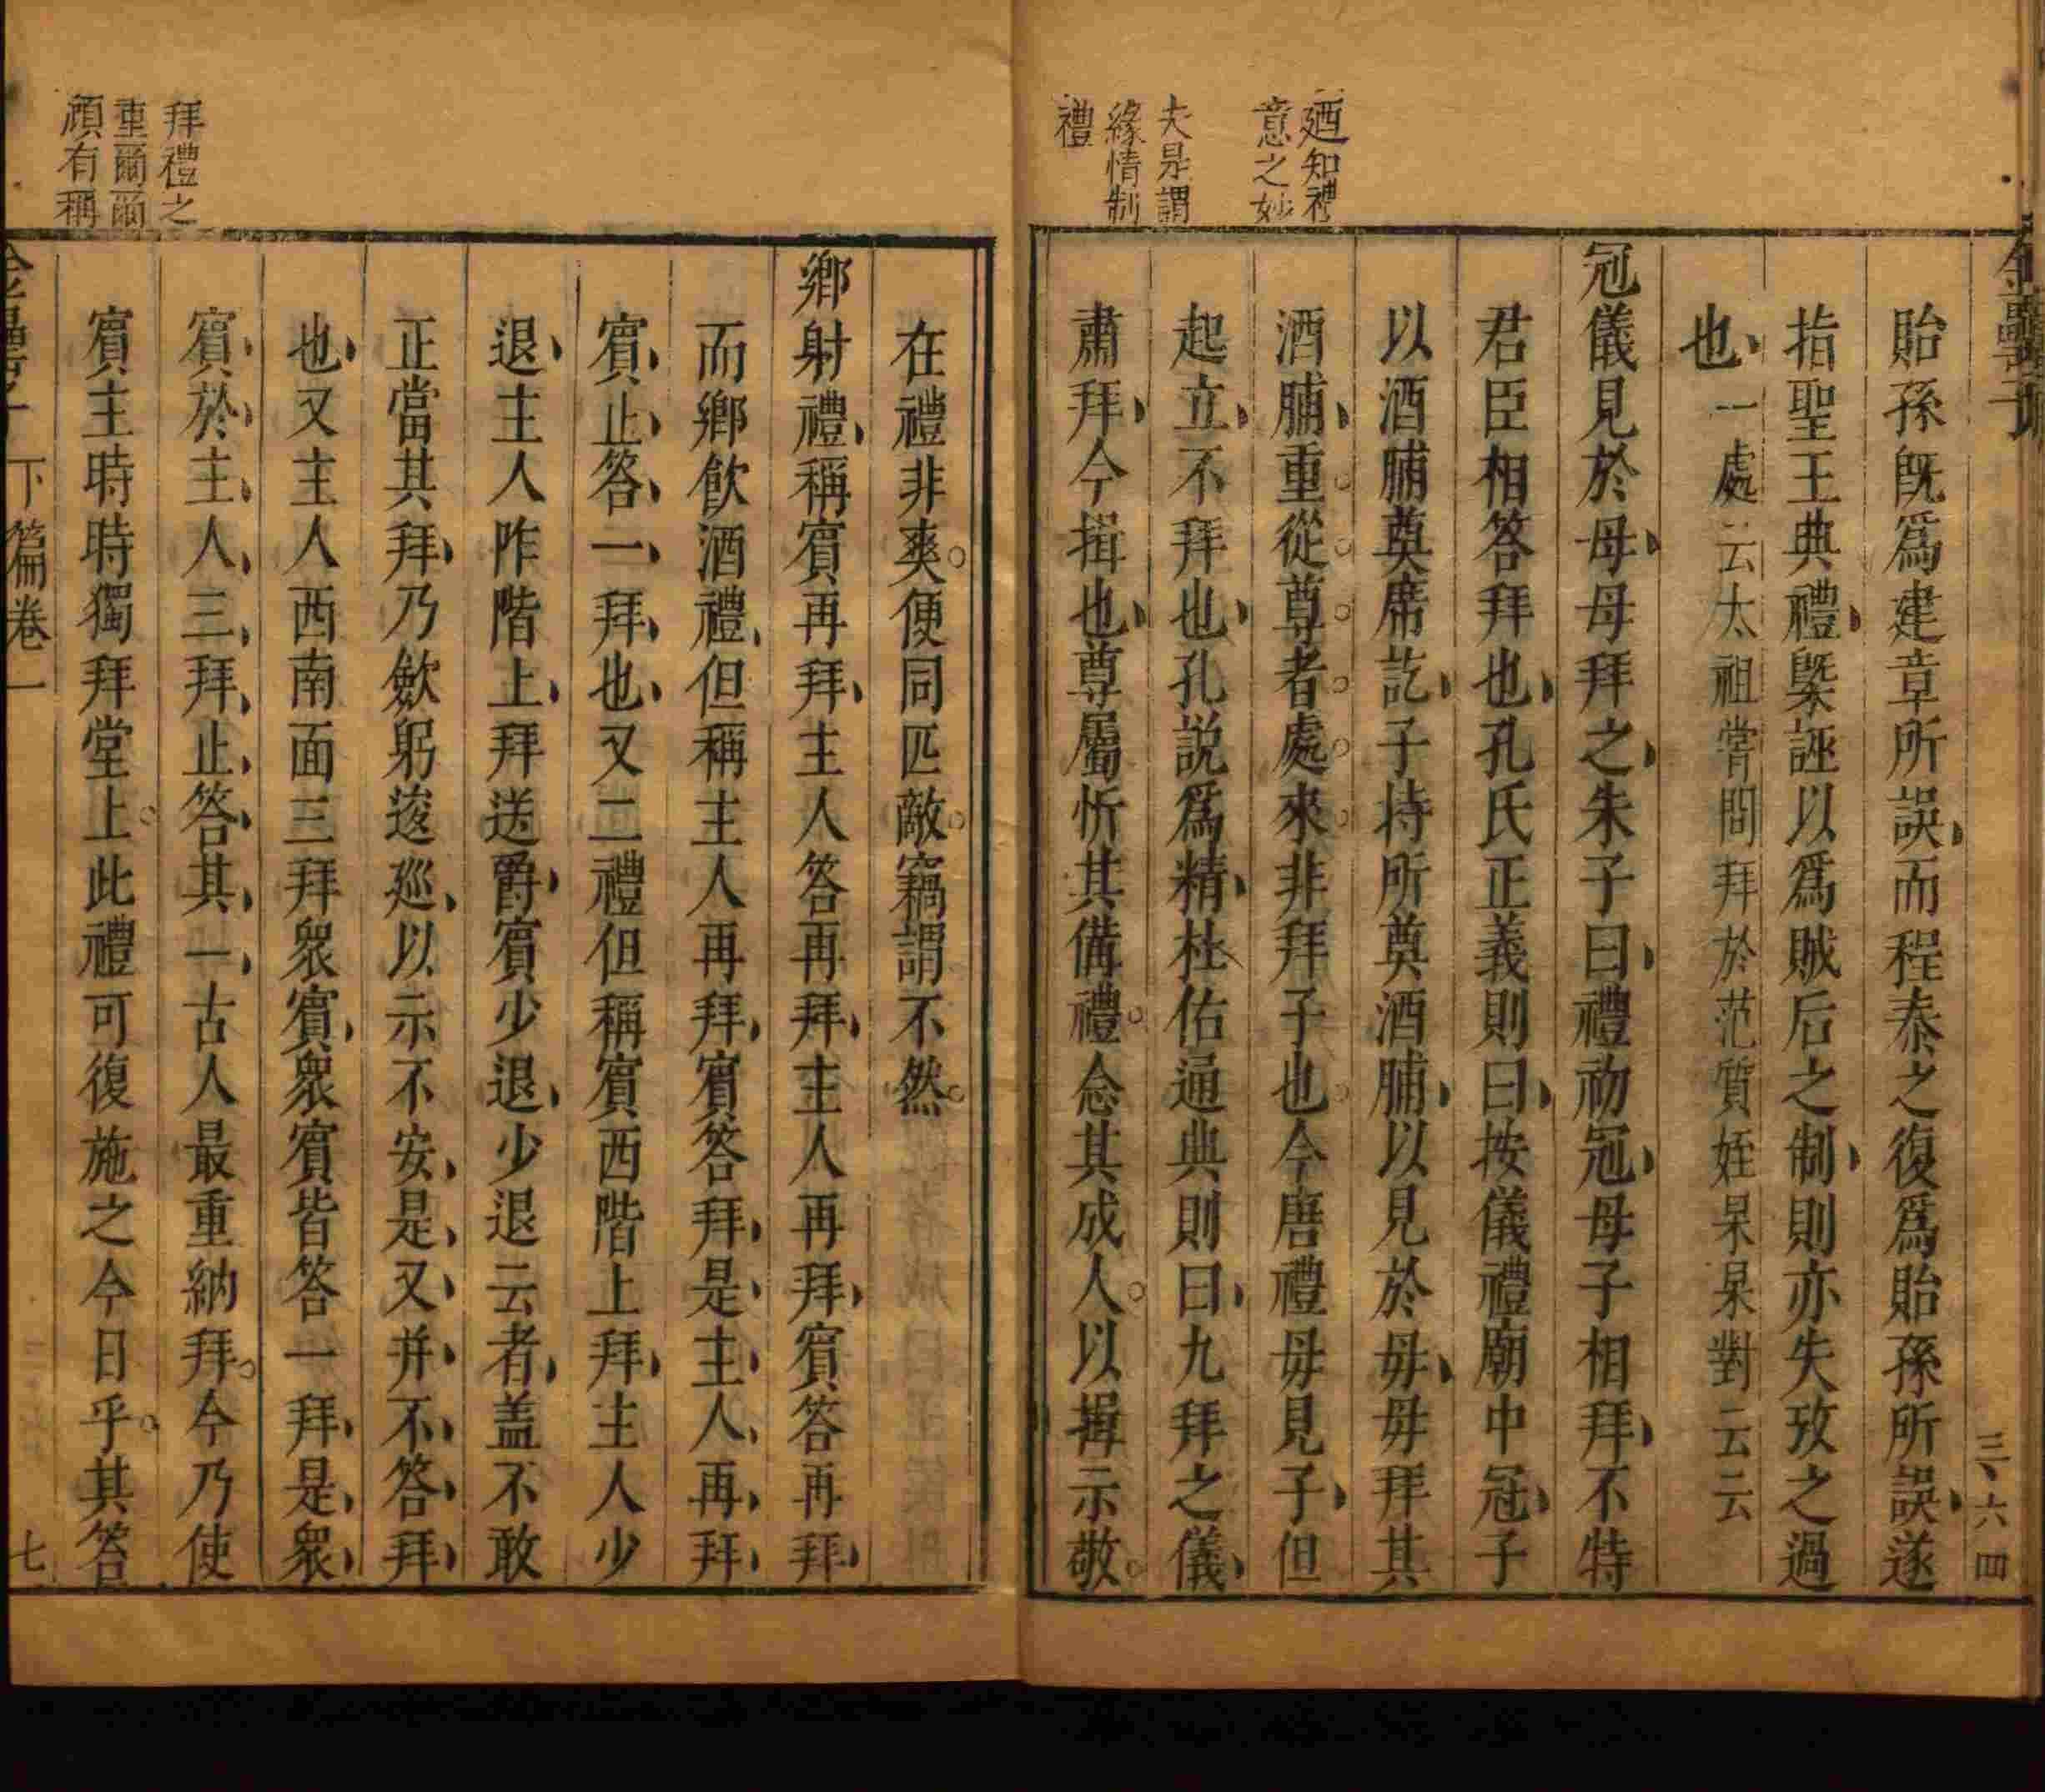 貽孫旣爲建章所誤而程泰之復爲貽孫所誤遂
指聖王典禮槩誣以爲賊后之制則亦失攷之過
也一處云太祖嘗問拜於范質姪杲杲對云云
冠儀見於母母拜之朱子曰禮初冠母子相拜不特
君臣相答拜也孔氏正義則曰按儀禮廟中冠子
以酒脯奠席訖子持所奠酒脯以見於母母拜其
酒脯重從尊者處來非拜子也今唐禮母見子但
起立不拜也孔說爲精杜佑通典則曰九拜之儀
肅拜今揖也尊屬忻其備禮念其成人以揖示敬
廼知禮
意之妙
夫是謂
緣情制
禮
三六四
在禮非爽便同匹敵竊謂不然
鄉射禮稱賓再拜主人答再拜主人再拜賓答再拜
而鄉飮酒禮但稱主人再拜賓答拜是主人再拜
賓止答一拜也又二禮但稱賓西階上拜主人少
退主人阼階上拜送爵賓少退少退云者盖不敢
正當其拜乃歛躬逡巡以示不安是又并不答拜
也又主人西南面三拜衆賓衆賓皆答一拜是衆
賓於主人三拜止答其一古人最重納拜今乃使
賓主時時獨拜堂上此禮可復施之今日乎其答
拜禮之
重爾爾
頋有稱
下篇卷一
七